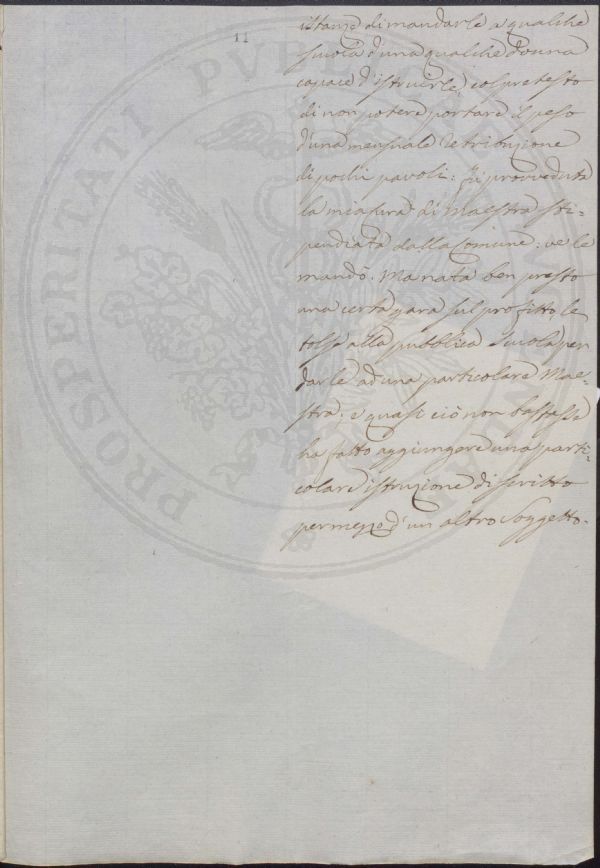 11
istanze di mandarle a qualche
scuola d'una qualche donna
capace d'istruirle, col pretesto
di non potere portare il peso
d'una mensuale retribuzione
di pochi pavoli: Fù provveduta
la mia cura di Maestra sti-
pendiata dalla Comune: ve le
mandò. Ma nata ben presto
una certa gara sul profitto, le
tolse alla pubblica scuola per
darle ad una particolare Mae-
stra; e quasi ciò non bastasse
ha fatto aggiungere una parti-
colare istruzione di scritto
per mezzo d'un altro Soggetto.
PROSPERITATI PUBLICAE